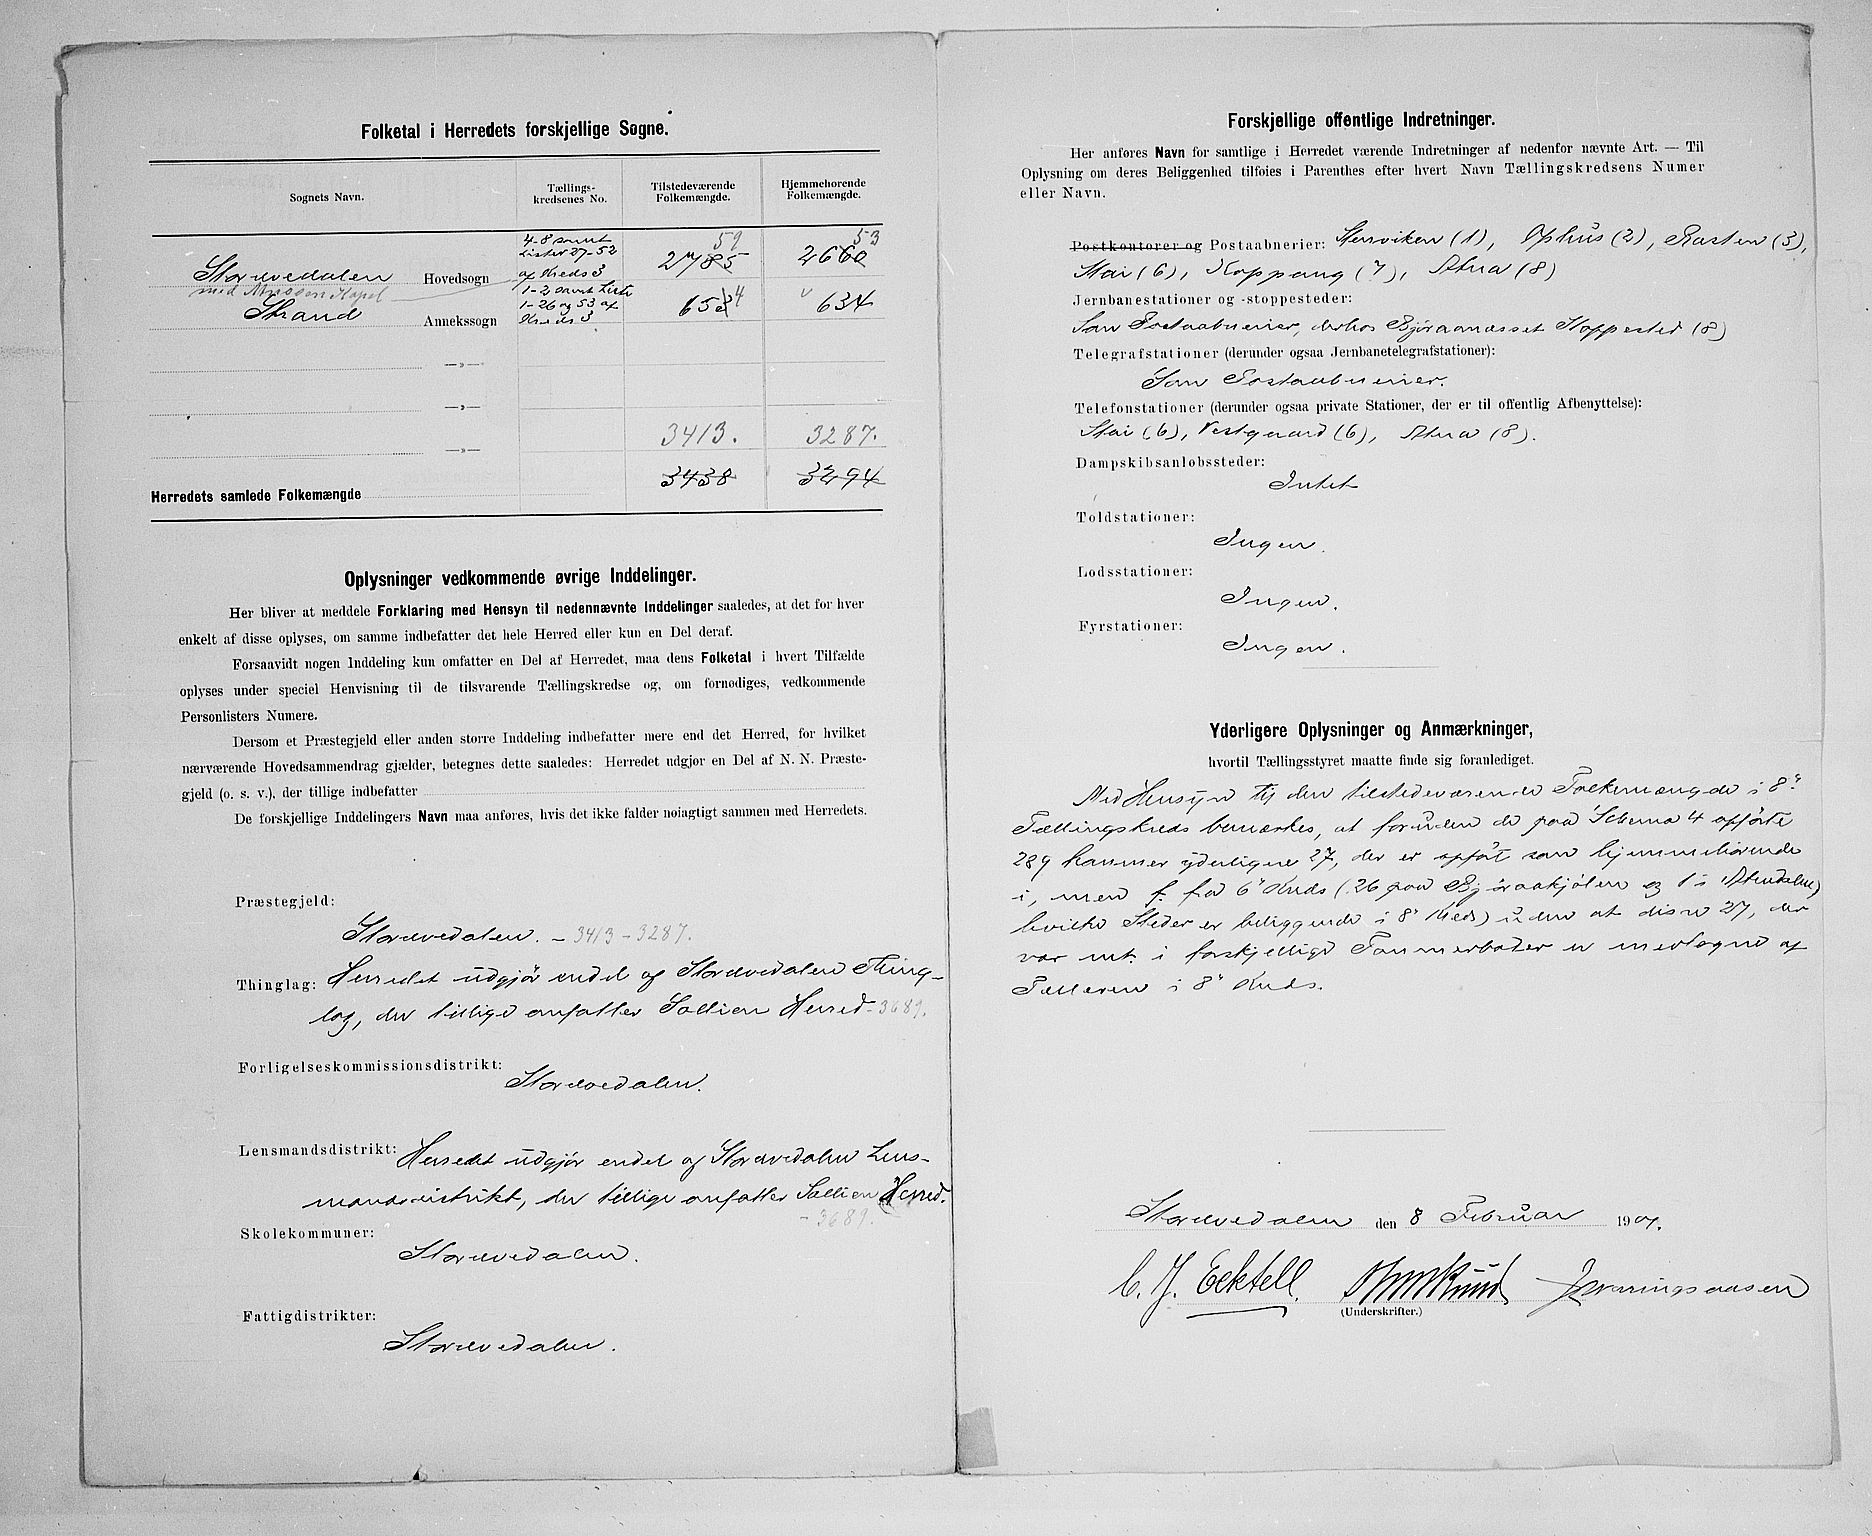 Folketal i Herredets forskjellige Sogne.
Sognets Navn.
Tællings-
kredsenes No.
Tilstedeværende
Folkemængde.
Hjemmehørende
Folkemængde.
4-8 samt
Lister 27-52
af Kreds 3
59
2785
53
2660
Storelvedalen
med Atnosen Kapel
Hovedsogn
1-2 samt Liste
1-26 og 53 af
Kreds 3
6534
634
Strand
Annekssogn
—»—
—»—
3413. 3287.
—»—
3438 3294
Herredets samlede Folkemængde
Oplysninger vedkommende øvrige Inddelinger.
Her bliver at meddele Forklaring med Hensyn til nedennævnte Inddelinger saaledes, at det for hver
enkelt af disse oplyses, om samme indbefatter det hele Herred eller kun en Del deraf.
Forsaavidt nogen Inddeling kun omfatter en Del af Herredet, maa dens Folketal i hvert Tilfælde
oplyses under speciel Henvisning til de tilsvarende Tællingskredse og, om fornødiges, vedkommende
Personlisters Numere.
Dersom et Præstegjeld eller anden større Inddeling indbefatter mere end det Herred, for hvilket
nærværende Hovedsammendrag gjælder, betegnes dette saaledes: Herredet udgjør en Del af N. N. Præste-
gjeld (o. s. v.), der tillige indbefatter
De forskjellige Inddelingers Navn maa anføres, hvis det ikke falder nøiagtigt sammen med Herredets.
Præstegjeld:
Storelvedalen. – 3413 – 3287.
Thinglag: Herredet udgjør endel af Storelvedalen Thing-
lag, der tillige omfatter Sollien Herred - 3689.
Forligelseskommissionsdistrikt:
Storelvedalen.
Lensmandsdistrikt: Herredet udgjør endel af Storelvedalen Lens-
mandsdistrikt, der tillige omfatter Sollien Herred.
- 3689.
Skolekommuner:
Storelvedalen.
Fattigdistrikter:
Storelvedalen.
Forskjellige offentlige Indretninger.
Her anføres Navn for samtlige i Herredet værende Indretninger af nedenfor nævnte Art. — Til
Oplysning om deres Beliggenhed tilføies i Parenthes efter hvert Navn Tællingskredsens Numer
eller Navn.
Postkontorer og Postaabnerier: Stenviken (1), Ophus (2), Rasten (3),
Stai (6), Koppang (7), Atna (8)
Jernbanestationer og -stoppesteder:
Som Postaabnerier, derhos Bjøraanæsset Stoppested (8)
Telegrafstationer (derunder ogsaa Jernbanetelegrafstationer):
Som Postaabnerier.
Telefonstationer (derunder ogsaa private Stationer, der er til offentlig Afbenyttelse):
Stai (6), Vestgaard (6), Atna (8).
Dampskibsanløbssteder:
Intet
Toldstationer:
Ingen.
Lodsstationer:
Ingen.
Fyrstationer:
Ingen.
Yderligere Oplysninger og Anmærkninger,
hvortil Tællingsstyret maatte finde sig foranlediget.
Med Hensyn til den tilstedeværende Folkemængde i 8de
Tællingskreds bemærkes, at foruden de paa Schema 4 opførte
289 kommer yderligere 27, der er opført som hjemmehørende
i, men f. fra 6te Kreds (26 paa Bjøraakjølen og 1 i Atnedalen)
hvilke Steder er beliggende i 8de Kreds) uden at disse 27, der
var nt. i forskjellige Tømmerkoier er medtagne af
Tælleren i 8de Kreds.
Storelvedalen den 8 Februar 1901.
C. J. Ecktell.
(Underskrifter.)